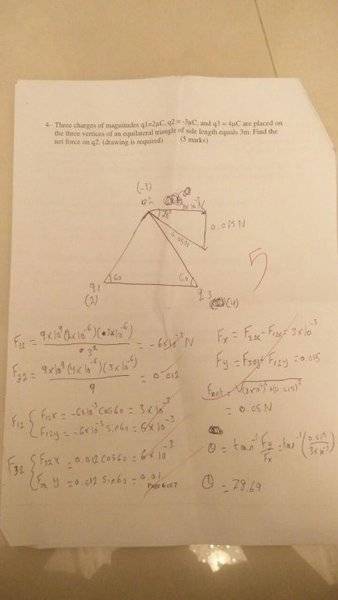 4- Three charges of magnitudes q1=2μC, q2 = -3μC, and q3 = 4μC are placed on
the three vertices of an equilateral triangle of side length equals 3m. Find the
net force on q2. (drawing is required) (5 marks)
(-3)
q2
0.015N
0.015N
60
60
q1
q3
(2)
(4)
5
F12 = 9x10^9(2x10^-6)(3x10^-6) / 3^2 = -6x10^-3 N
F32 = 9x10^9(4x10^-6)(3x10^-6) / 9 = 0.012
F12 { F12x = -6x10^-3 cos60 = 3x10^-3
F12y = -6x10^-3 sin60 = 5x10^-3
F32 { F32x = 0.012 cos60 = 6x10^-3
F32y = 0.012 sin60 = 0.01
Fx = F32x - F12x = 3x10^-3
Fy = F32y + F12y = 0.015
Fnet =
= 0.05N
θ = tan^-1 Fy/Fx = tan^-1
θ = 78.69
Page 6 of 7